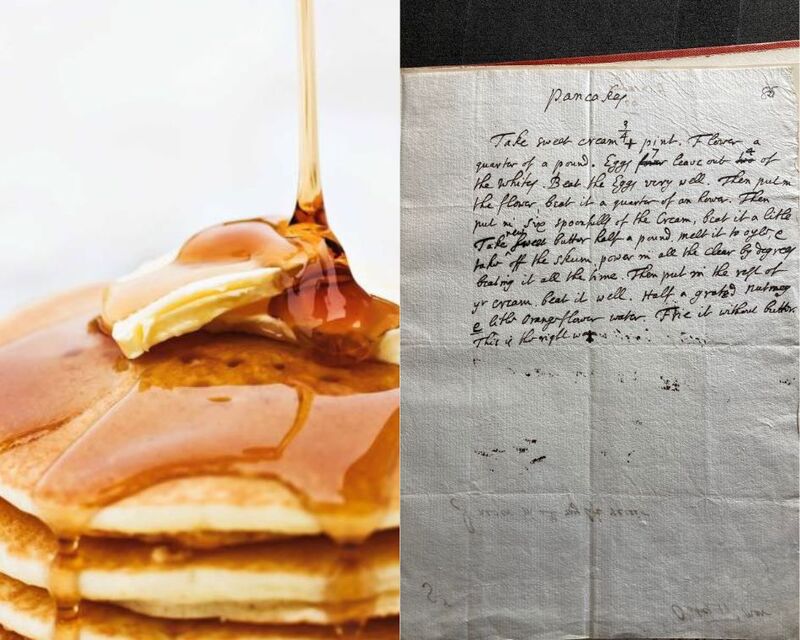 Pancakes
86
Take sweet cream 3/4 + pint. Flower a
quarter of a pound. Eggs four 7 leave out two 4 of
the whites. Beat the Eggs very well. Then put in
the flower, beat it a quarter of an hower. Then
put in six spoonfulls of the Cream, beat it a litle
Take new sweet butter half a pound, melt it to oyle &
take off the skum, power in all the clear by degrees
beating it all the time. Then put in the rest of
yr cream. beat it well. Half a grated nutmeg
& litle Orangeflower water. Frie it without butter.
This is the right way